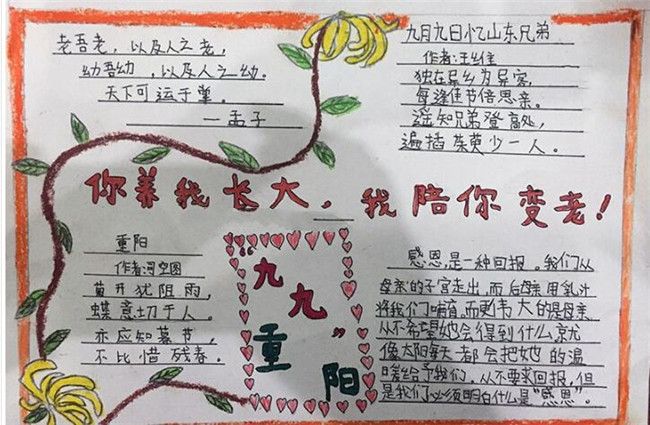 老吾老，以及人之老，
幼吾幼，以及人之幼。
天下可运于掌。
—孟子
九月九日忆山东兄弟
作者:王维
独在异乡为异客，
每逢佳节倍思亲。
遥知兄弟登高处，
遍插茱萸少一人。
你养我长大，我陪你变老！
重阳
作者:司空图
菊开犹阻雨，
蝶意切于人。
亦应知暮节，
不比惜残春。
“九九”
重阳
感恩，是一种回报。我们从
母亲的子宫走出，而后母亲用乳汁
将我们哺育，而更伟大的是母亲
从不希望她会得到什么，就
像太阳每天都会把她的温
暖给予我们，从不要求回报，但
是我们必须明白什么是“感恩”。